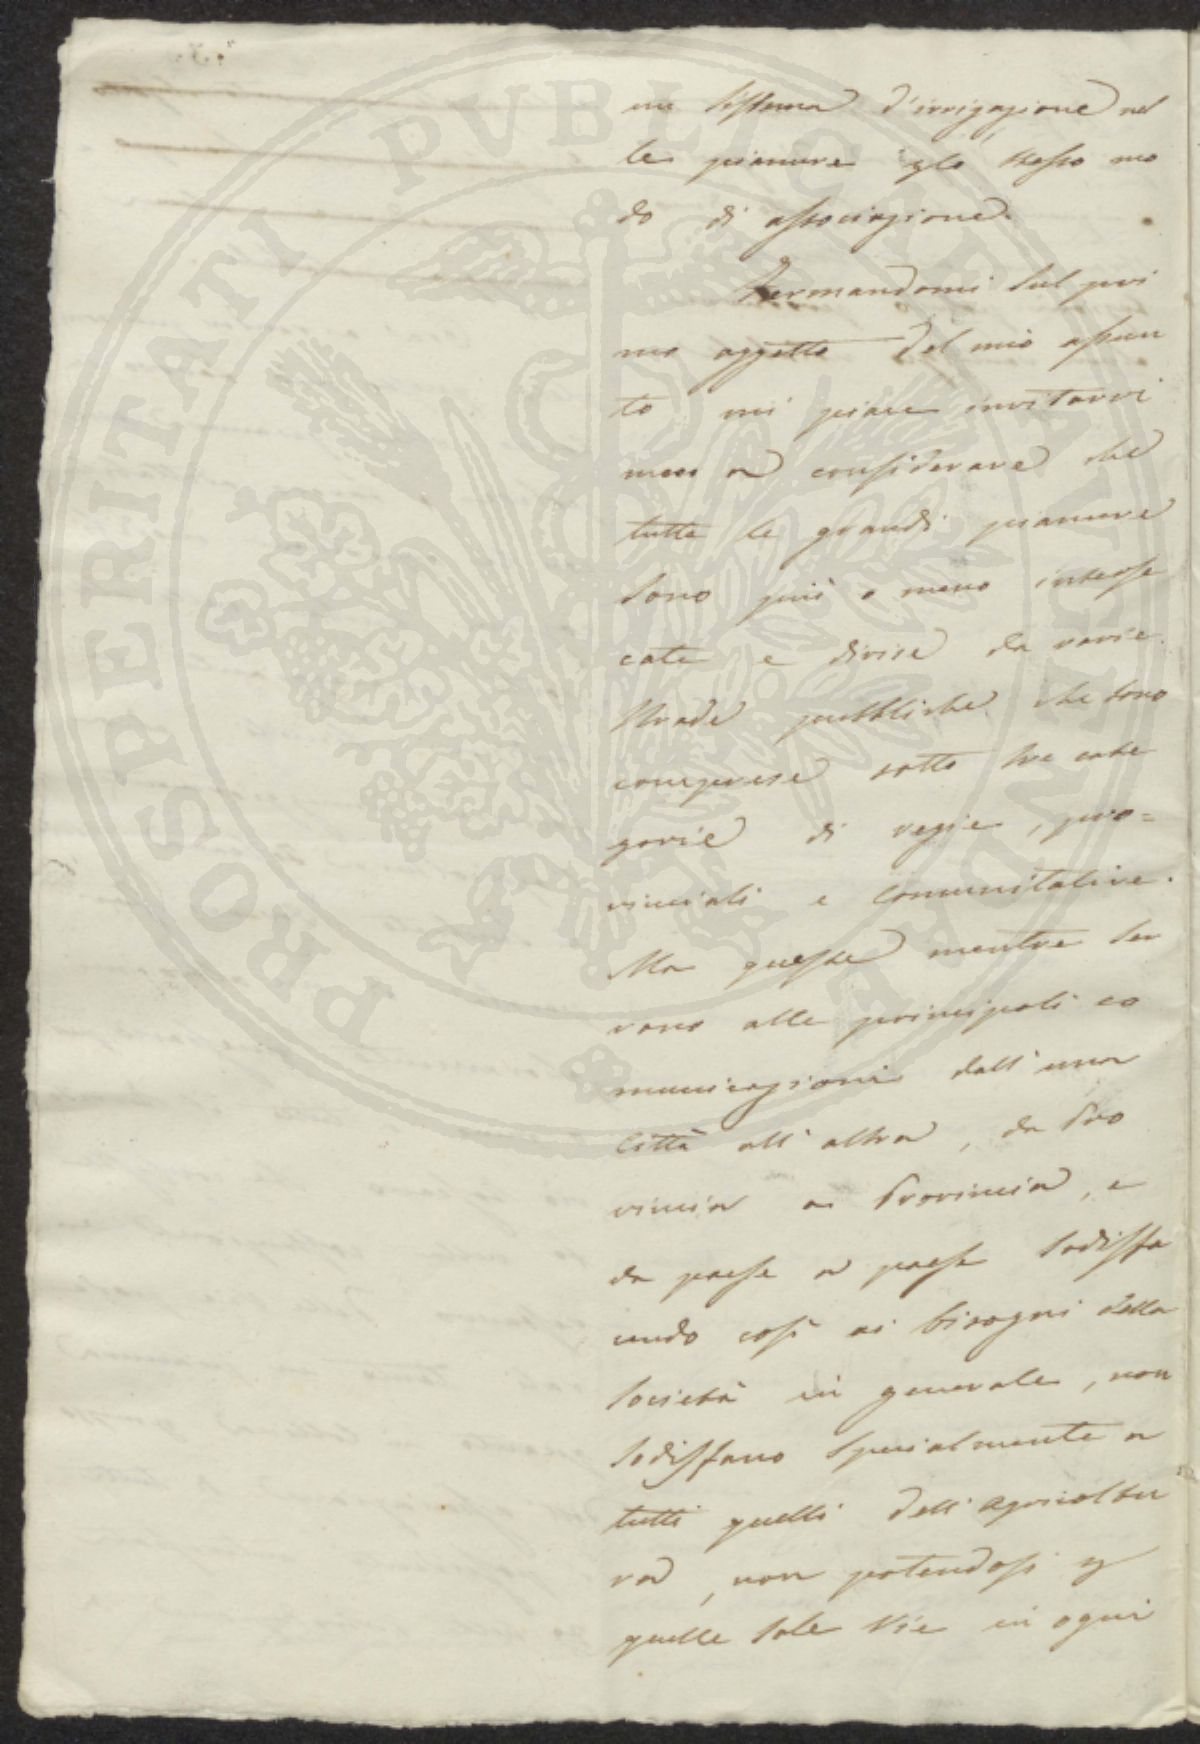 un sistema d'irrigazione nel
le pianure  lo stesso mo
do di associazione.
Fermandomi sul pri
mo oggetto del mio assun
to mi piace invitarvi
a considerare che
tutte le grandi pianure
sono più o meno interse
cate e divise da varie
strade pubbliche che sono
comprese sotto tre cate
gorie di regie, pro=
vinciali e Comunitative.
Ma queste mentre ser
vono alle principali co
municazioni dall'una
Città all'altra, da Pro
vincia a Provincia, e
da paese a paese sodisfa
cendo così ai bisogni della
società in generale, non
sodisfano specialmente a
tutti quelli dell'agricoltu
ra, non potendosi
quelle sole Vie in ogni
PROSPERITATI PUBLICAE AUGENDAE